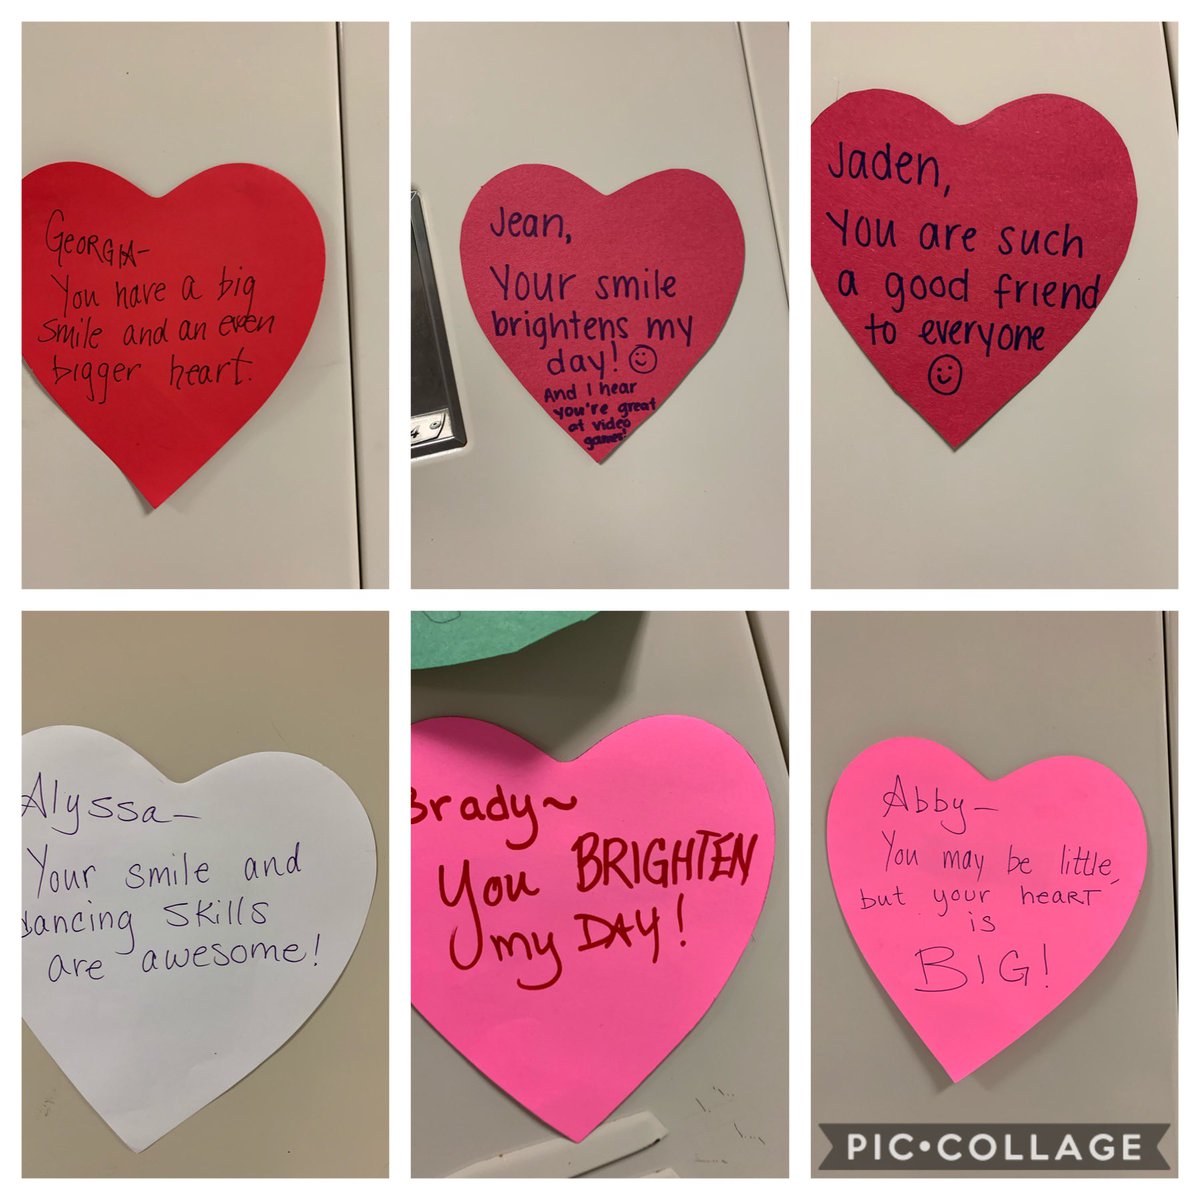 GEORGIA-
You have a big
smile and an even
bigger heart.
Jean,
Your smile
brightens my
day! ☺
And I hear
you're great
at video
games!
4
Jaden,
You are such
a good friend
to everyone
☺
Alyssa-
Your smile and
dancing skills
are awesome!
Brady~
You BRIGHTEN
my DAY!
Abby-
You may be little,
but your heart
is
BIG!
PIC•COLLAGE